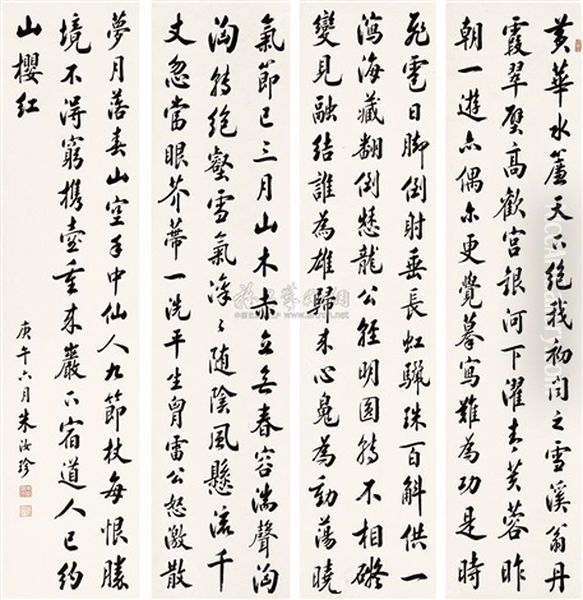 黄華水簾天下絕我初聞之雪溪翁丹
霞翠壁高歡宮銀河下濯青芙蓉昨
朝一遊亦偶尔更覺摹寫難為功是時
氣節已三月山木赤立無春容湍聲洶
洶轉絕壑雪氣凜凜隨陰風懸流千
丈忽當眼芥蒂一洗平生胷雷公怒激散
飛雹日脚倒射垂長虹驪珠百斛供一
瀉海藏翻倒愁龍公輕明圓轉不相礙
變見融結誰為雄歸來心魄為動蕩曉
夢月落春山空手中仙人九節杖每恨勝
境不得窮携壺重來巖下宿道人已約
山櫻红
庚午六月朱汝珍